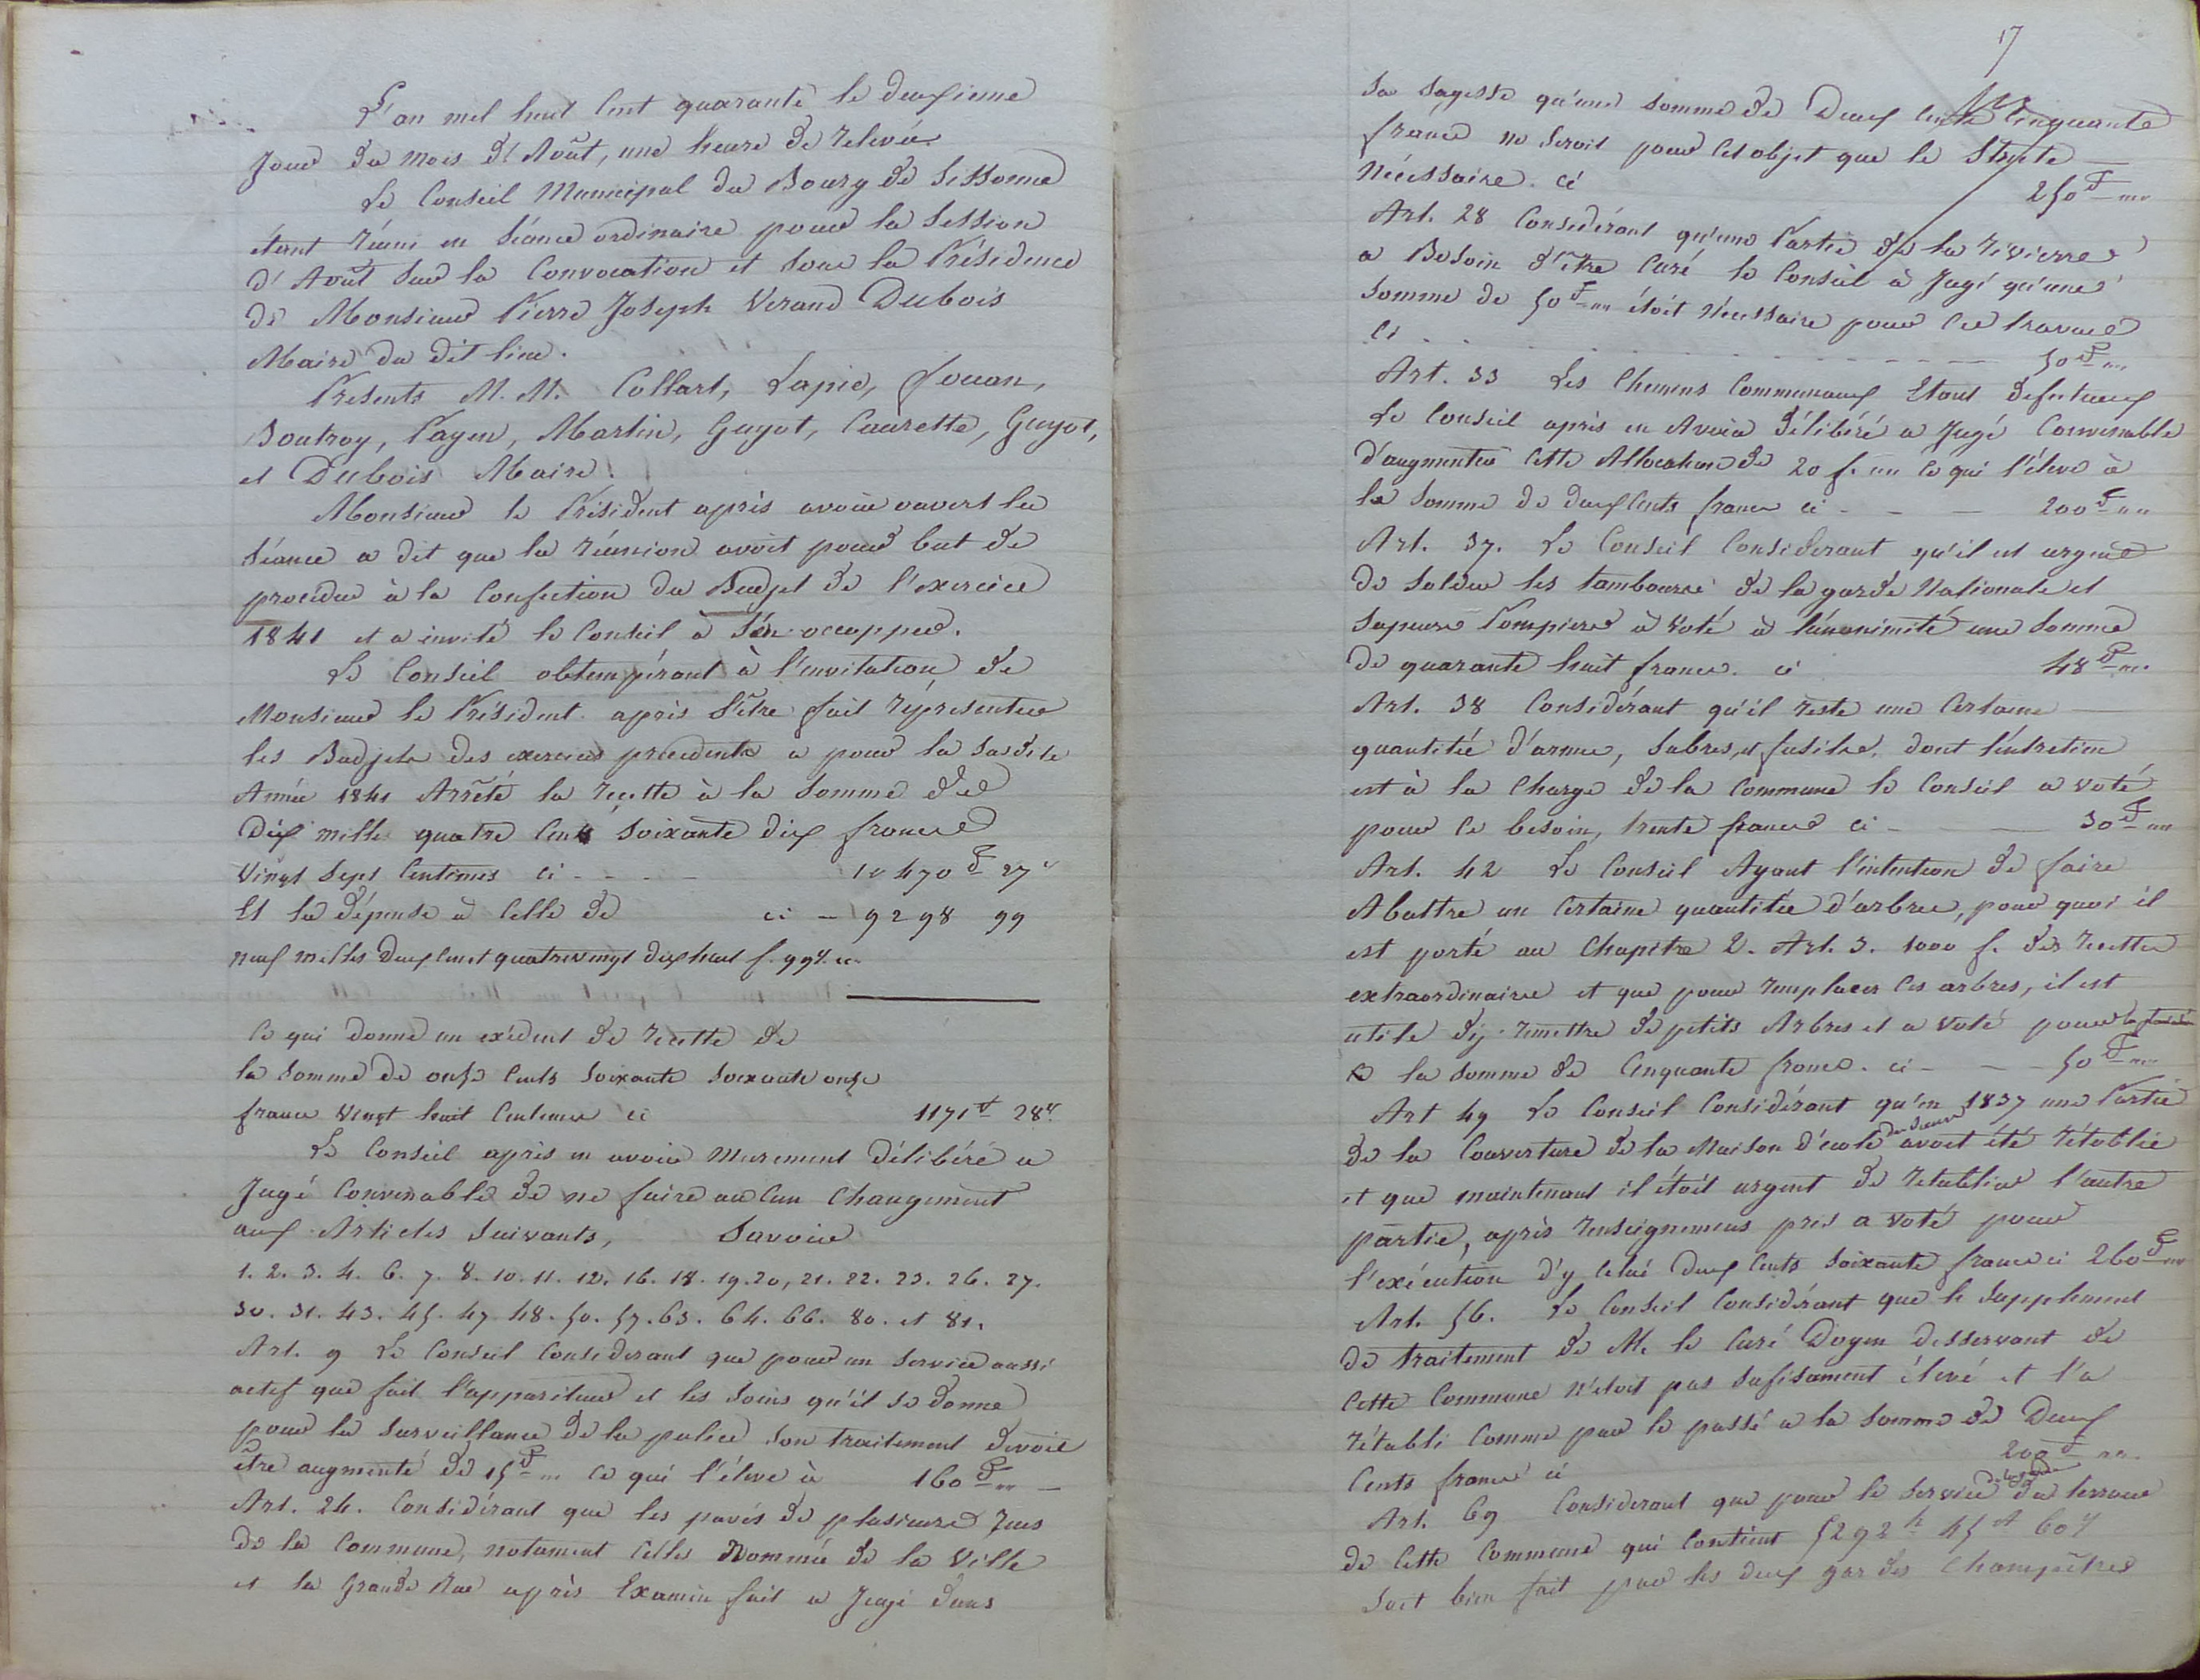 L'an mil huit Cent quarante le deuxieme
Jour du mois d'Août, une heure de relevée.
Le Conseil Municipal du Bourg de Sissonne
étant réuni en séance ordinaire pour la Session
d'Août sur la Convocation et sous la Présidence
de Monsieur Pierre Joseph Verand Dubois
Maire du dit lieu.
Presents M.M. Collart, Lapie, Jouan,
Boutroy, Payen, Martin, Guyot, Caurette, Guyot,
et Dubois Maire.
Monsieur le Président après avoir ouvert la
séance a dit que la réunion avoit pour but de
proceder à la Confection du Budjet de l'exercice
1841 et a invité le Conseil à s'en occupper.
Le Conseil obtempérant à l'invitation de
Monsieur le Président après s'être fait réprésenter
les Budjets des exercices précedents a pour la susdite
Année 1841 Arrêté la recette à la Somme de
Dix milles quatre Cent Soixante dix francs
Vingt Sept Centimes Ci - - - - 10470 F 27 c
Et la dépense à Celle de ci - 9298 99
neuf milles Deux Cent quatrevingt dix huit f. 99 c. ci
Ce qui donne un exédent de recette de
la Somme de onze Cents Soixante Soixante onze
francs Vingt huit Centimes ci 1171 F 28 c
Le Conseil après en avoir murement délibéré a
Jugé Convenable de ne faire aucun Changement
aux Articles Suivants, Savoir
1. 2. 3. 4. 6. 7. 8. 10. 11. 12. 16. 18. 19. 20, 21. 22. 23. 26. 27.
30. 31. 43. 45. 47. 48. 50. 57. 63. 64. 66. 80. et 81.
Art. 9 Le Conseil Considerant que pour un Service aussi
actif que fait l'appariteur et les Soins qu'il se donne
pour la Surveillance de la police Son traitement devoit
être augmenté de 15 F " ce qui l'éleve à 160 F " -
Art. 24. Considérant que les pavés de plusieurs rues
de la Commune, notament Celles Nommée de la Ville
et la Grande Rue après Examin fait a Jugé dans
17
Sa Sagesse qu'une Somme de Deux Cents Cinquante
francs ne Seroit pour Cet objet que le Stricte
Nécessaire. ci 250 F "
Art. 28 Considérant qu'une Partie de la rivierre
a Besoin d'être Curé le Conseil à Jugé qu'une
Somme de 50 F " étoit Nécessaire pour Ces travaux
Ci - - - 50 F "
Art. 33 Les Chemins Communaux Etant defectueux
Le Conseil après en Avoir Délibéré a Jugé Convenable
d'augmenter Cette Allocation de 20 f. " ce qui l'éleve à
la Somme de deux Cents francs ci - - - 200 F "
Art. 37. Le Conseil Considerant qu'il est urgent
de Solder les tambours de la garde Nationale et
Sapeurs Pompiers à Voté à l'unonimité une Somme
de quarante huit francs. ci 48 F "
Art. 38 Considérant qu'il reste une Certaine
quantitée d'armes, Sabres, et fusils, dont l'entretien
est à la Charge de la Commune le Conseil a Voté
pour Ce besoin, trente francs ci - - 30 F "
Art. 42 Le Conseil Ayant l'intention de faire
Abattre un Certaine quantitée d'arbres, pour quoi il
est porté au Chapitre 2. Art. 3. 1000 f. des recettes
extraordinaires et que pour remplacer Ces arbres, il est
utile d'y remettre de petits Arbres et a Voté pour
la Somme de Cinquante francs. ci - - - 50 F "
Art 49 Le Conseil Considérant qu'en 1837 une Partie
de la Couverture de la Maison d'école des Soeurs avoit été rétablie
et que maintenant il étoit urgent de retablir l'autre
partie, après renseignemens pris a Voté pour
l'exécution d'y Celui deux Cents Soixante francs ci 260 F "
Art. 56. Le Conseil Considérant que le Supplement
de traitement de M. le Curé Doyen desservant de
Cette Commune n'étoit pas Sufisament élevé et l'a
rétabli Comme par le passé a la Somme de Deux
Cents francs ci 200 F "
Art. 69 Considerant que pour le Service de la garde du terroir
de Cette Commune qui Contient 5292 h 45 a 60 c
Soit bien fait par les deux gardes Champêtres